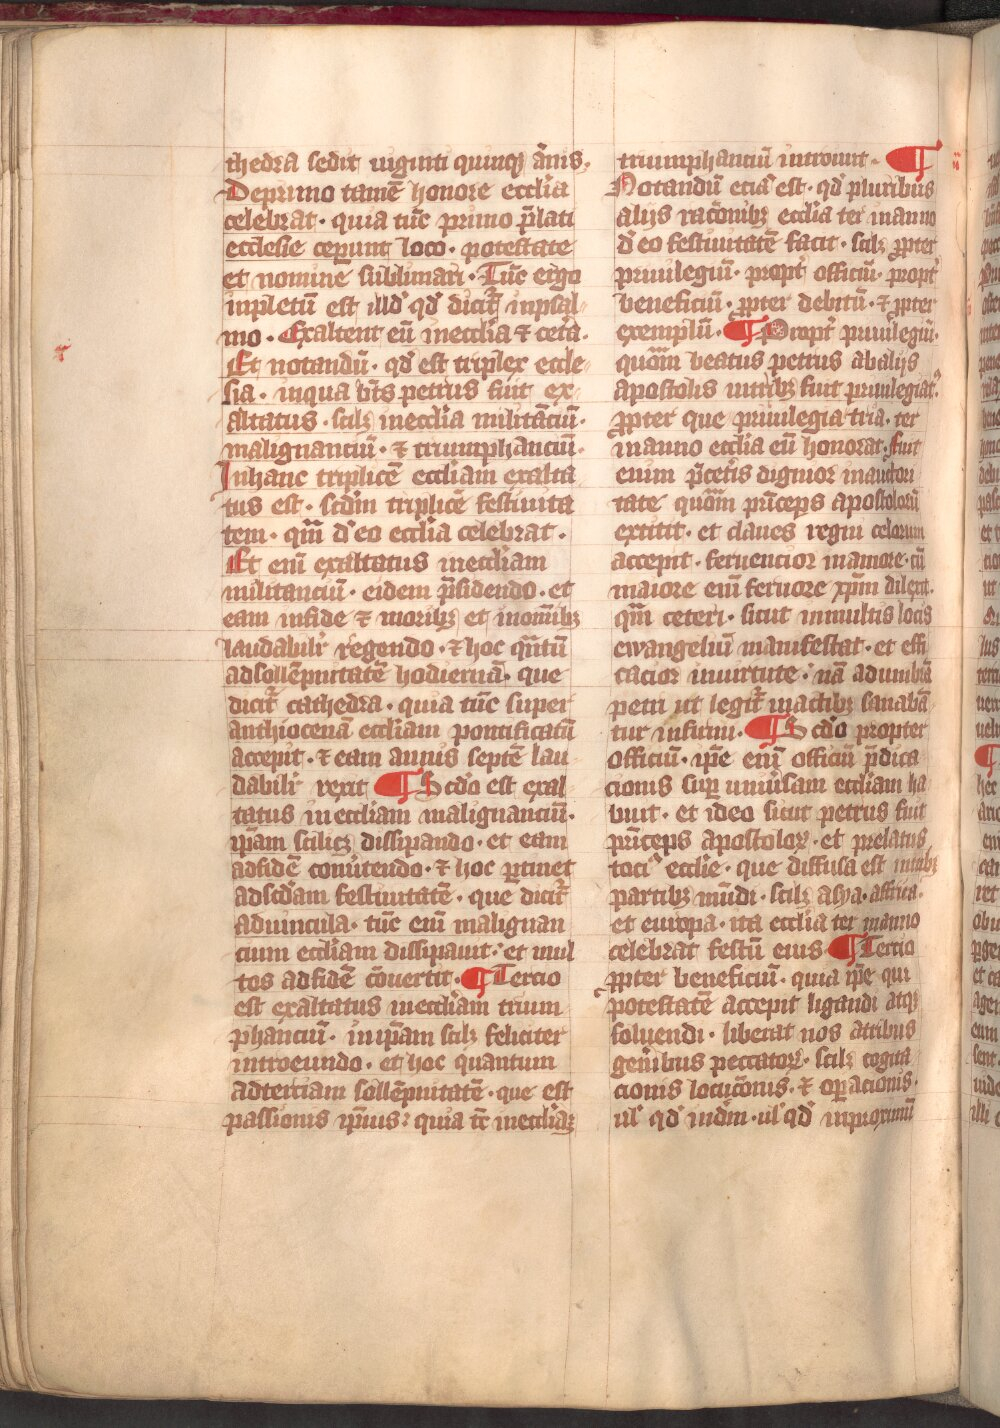 thedra sedit uiginti quinq₃ ãnis.
De primo tamē honore ecclīa
celebrat · quia tūc primo p̄lati
ecclesie ceperunt loco · potestate
et nomine sublimari · Tūc ergo
inpletū est illd̛ qd̛ dicit᷑ inpsal
mo · Exaltent eū inecclīa ⁊ ceta̅ ·
Et notandū · qd̛ est triplex eccle
sia · inqua bt̄s petrus fuit ex
altatus · scilꝫ inecclīa militāciū ·
malignanciū · ⁊ triumphanciū ·
Inhanc triplicē eccliam exalta
tus est · scd̄m triplicē festiuita
tem · qm̄ d̛eo ecclīa celebrat ·
Et enī exaltatus inecclīam
militanciū · eidem p̄sidendo · et
eam infide ⁊ moribꝫ et inom̄ibꝫ
laudabilit᷑ regendo · ⁊ hoc qn̄tū
adsollēpnitatē hodiernā · que
dicit᷑ cathedra · quia tūc super
anthiocenā eccliam pontificatū
accepit · ⁊ eam annis septē lau
dabilit᷑ rexit ¶ Scd̄o est exal
tatus in eccliam malignanciū ·
ip̄am scilicꝫ dissipando · et eam
adfidē conūtendo · ⁊ hoc ꝑtinet
adscd̄am festiuitatē · que dicit᷑
aduincula · tūc enī malignan
cium eccliam dissipauit · et mul
tos adfidē cōuertit · ¶ Tercio
est exaltatus inecclīam trium
phanciū · inip̄am scilꝫ feliciter
introeundo · et hoc quantum
adterciam sollēpnitatē · que est
passionis ip̄ius : quia tc̄ inecclīaꝫ
triumphanciū introiuit · ¶
Notandū eciā est · qd̛ pluribus
alijs rac̄onibꝫ ecclīa ter inanno
d̛eo festiuitatē facit · scilꝫ ꝓpter
priuilegiū · propt᷑ officiū · propt᷑
beneficiū · ꝓpter debitū · ⁊ ꝓpter
exemplū · ¶ Propt᷑ priuilegiū ·
quōm beatus petrus abalijs
apostolis intribꝫ fuit priuilegiat᷒
ꝓpter que priuilegia tria · ter
inanno ecclīa eū honorat · fuit
enim p̄cet̄is dignior inauctori
tate quōm prīceps apostolorū
extitit · et claues regni celorum
accepit · feruencior inamore · cū
maiore enī feruore xp̄m dilexit ·
qm̄ ceteri · sicut inmultis locis
ewangeliū manifestat · et effi
cacior inuirtute · nā adumbrā
petri ut legit᷑ inactibꝫ sanabā
tur infirmi · ¶ Scd̄o propter
officiū · ip̄e enī officiū p̄dica
cionis sup᷑ uniūsam eccliam ha
buit · et ideo sicut petrus fuit
prīceps apostoloꝝ · et prelatus
toci᷒ ecclīe · que diffusa est intribꝫ
partibꝫ mūdi · scilꝫ asya · affrica ·
et europa · ita ecclīa ter inanno
celebrat festū eius ¶ Tercio
ꝓpter beneficiū · quia ip̄e qui
potestatē accepit ligandi atqꝫ
soluendi · liberat nos atribus
gen̄ibus peccatoꝝ · scilꝫ cogita
cionis locuc̄onis · ⁊ oꝑacionis ·
ul̛ qd̛ indm̄ · ul̛ qd̛ inproximū